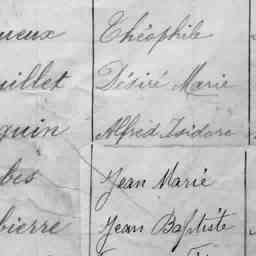 ueux Théophile
uillet Désiré Marie
guin Alfred Isidore
bes Jean Marie
bierre Jean Baptiste